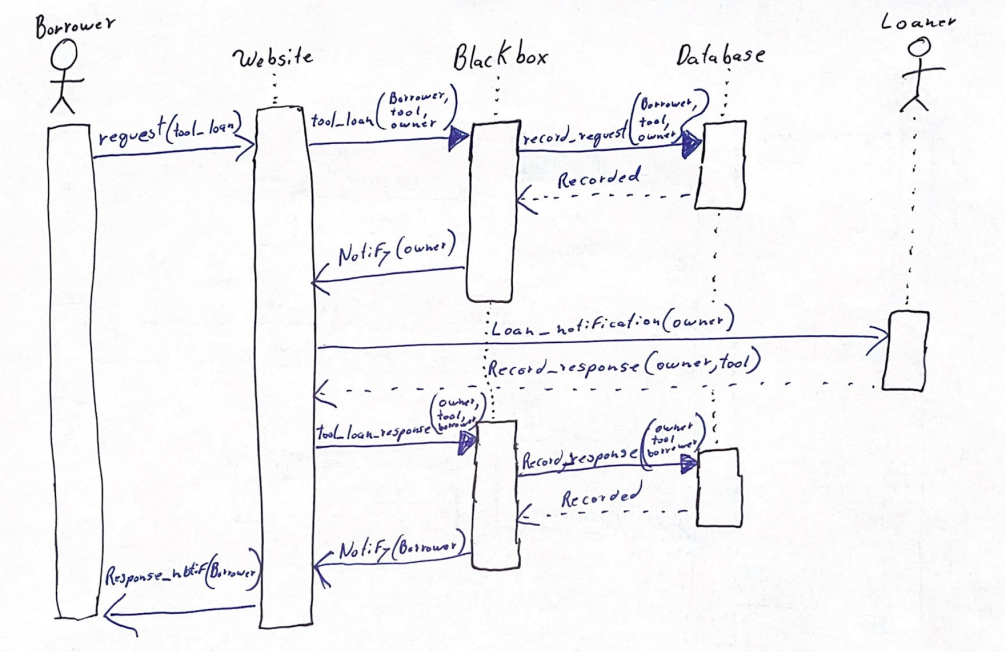 Borrower
Website
Blackbox
Database
Loaner
request(tool_loan)
tool_loan(Borrower,
tool,
owner)
record_request(Borrower,
tool,
owner)
Recorded
Notify(owner)
Loan_notification(owner)
Record_response(owner,tool)
tool_loan_response(owner,
tool,
borrower)
Record_response(owner
tool
borrower)
Recorded
Notify(Borrower)
Response_notif(Borrower)